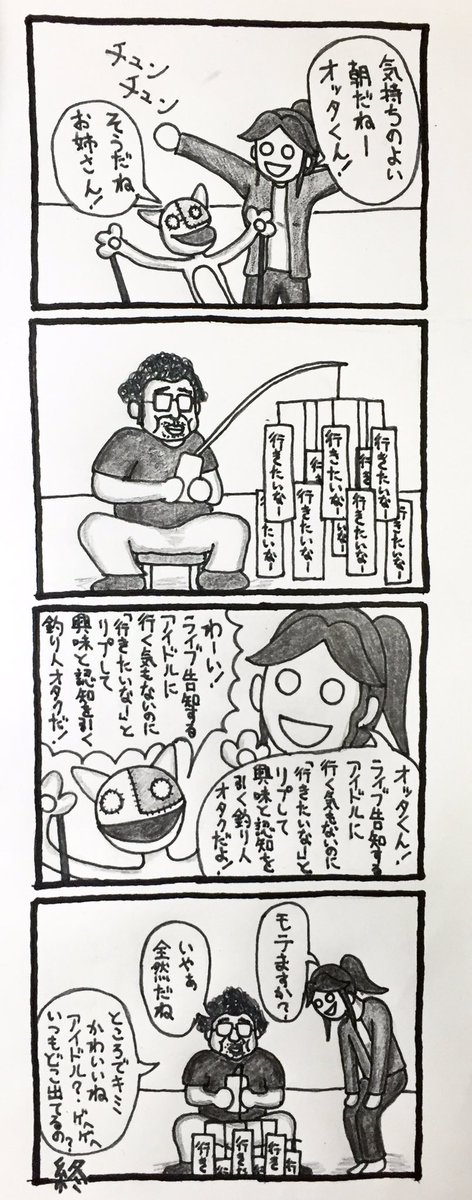 気持ちのよい
朝だねー
オッタくん!
チュン
チュン
そうだね
お姉さん!
行きたいなー
行きたいなー
行きたいなー
行きたいなー
行きたいなー
オッタくん!
ライブ告知する
アイドルに
行く気もないのに
「行きたいなー」と
リプして
興味と認知を
引く釣り人
オタクだよ!
わーい!
ライブ告知する
アイドルに
行く気もないのに
「行きたいなー」と
リプして
興味と認知を引く
釣り人オタクだ!
モテますか?
いやぁ
全然だね
ところでキミ
かわいいね
アイドル?ゲヘヘ
いつもどこ出てるの?
行き
行き
行き
行き
終